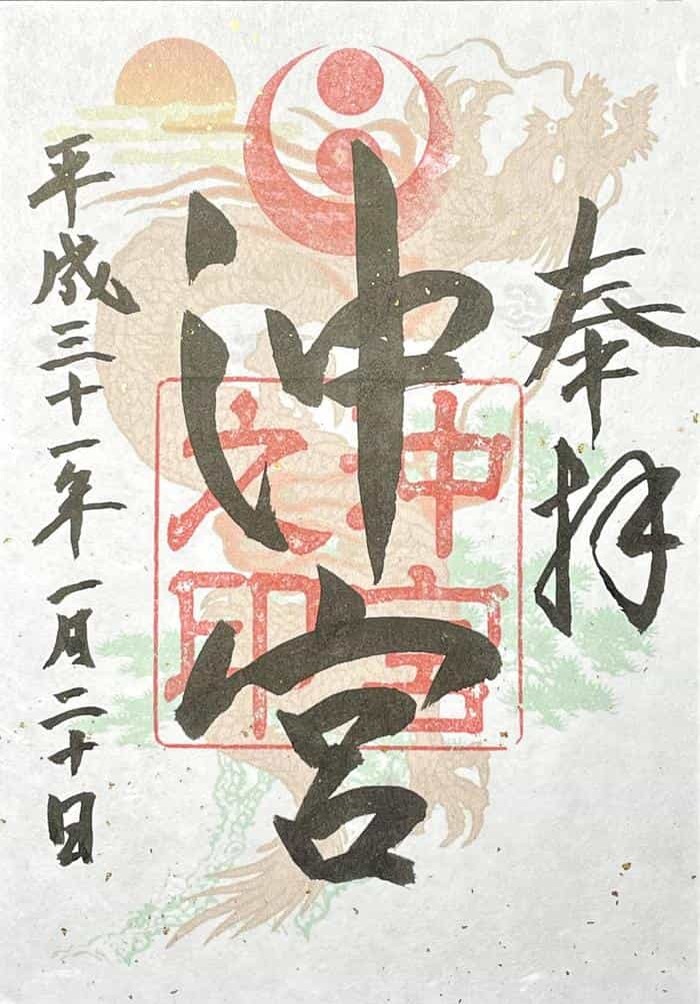 奉拝
沖宮
沖宮之印
平成三十一年一月二十日